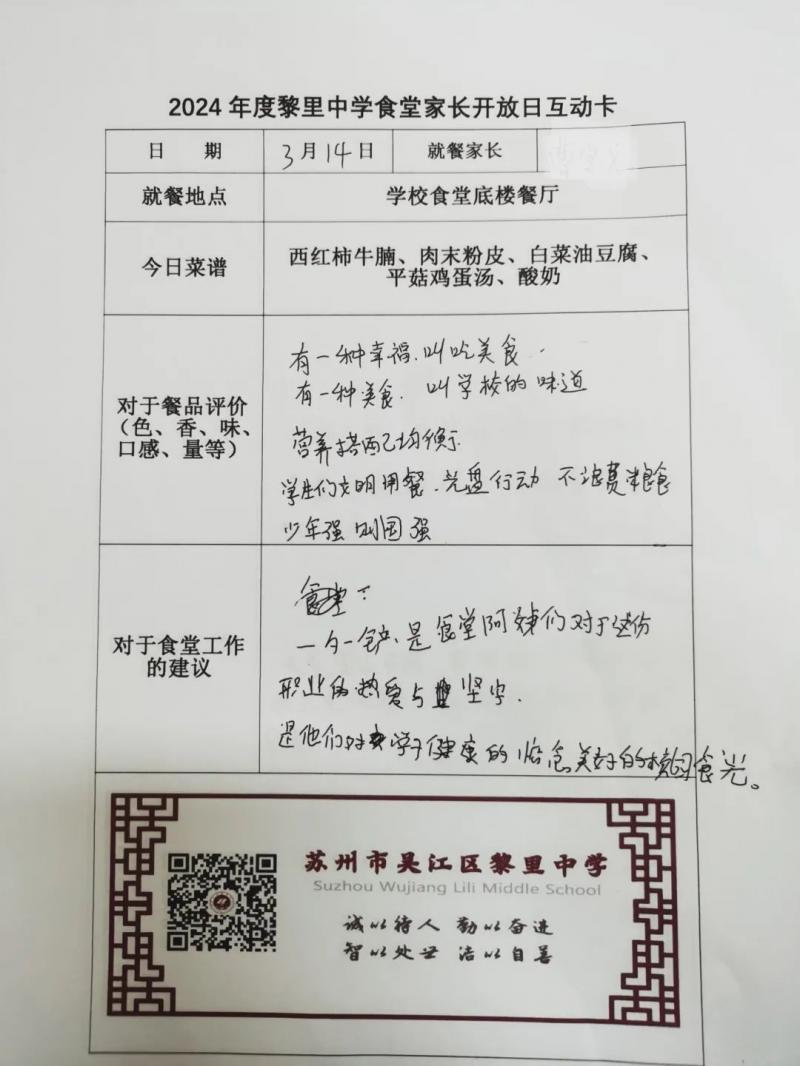 2024 年度黎里中学食堂家长开放日互动卡
日 期 3月14日 就餐家长
就餐地点 学校食堂底楼餐厅
今日菜谱 西红柿牛腩、肉末粉皮、白菜油豆腐、
平菇鸡蛋汤、酸奶
对于餐品评价
(色、香、味、
口感、量等)
有一种幸福.叫吃美食.
有一种美食. 叫学校的味道
营养搭配均衡
学生们文明用餐.光盘行动 不浪费粮食
少年强则国强
对于食堂工作
的建议
食堂:
一勺一铲.是食堂阿姨们对于这份
职业的热爱与坚守.
是他们对学子健康的 美好的校园食光。
苏州市吴江区黎里中学
Suzhou Wujiang Lili Middle School
诚以待人 勤以奋进
智以处世 洁以自善